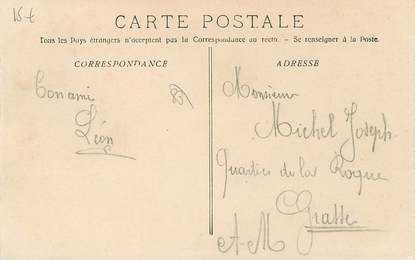 15 €
CARTE POSTALE
Tous les Pays étrangers n'acceptent pas la Correspondance au recto. - Se renseigner à la Poste.
CORRESPONDANCE
Ton ami
Léon
83
ADRESSE
Monsieur
Michel Joseph
Quartier de la Roque
Grasse
A-M